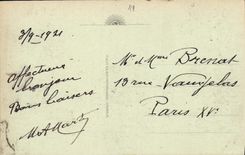 3/9-1921
Affectueux
bonjour
Bons baisers
Mr et Mme Brenat
13 rue Vaugelas
Paris XVe